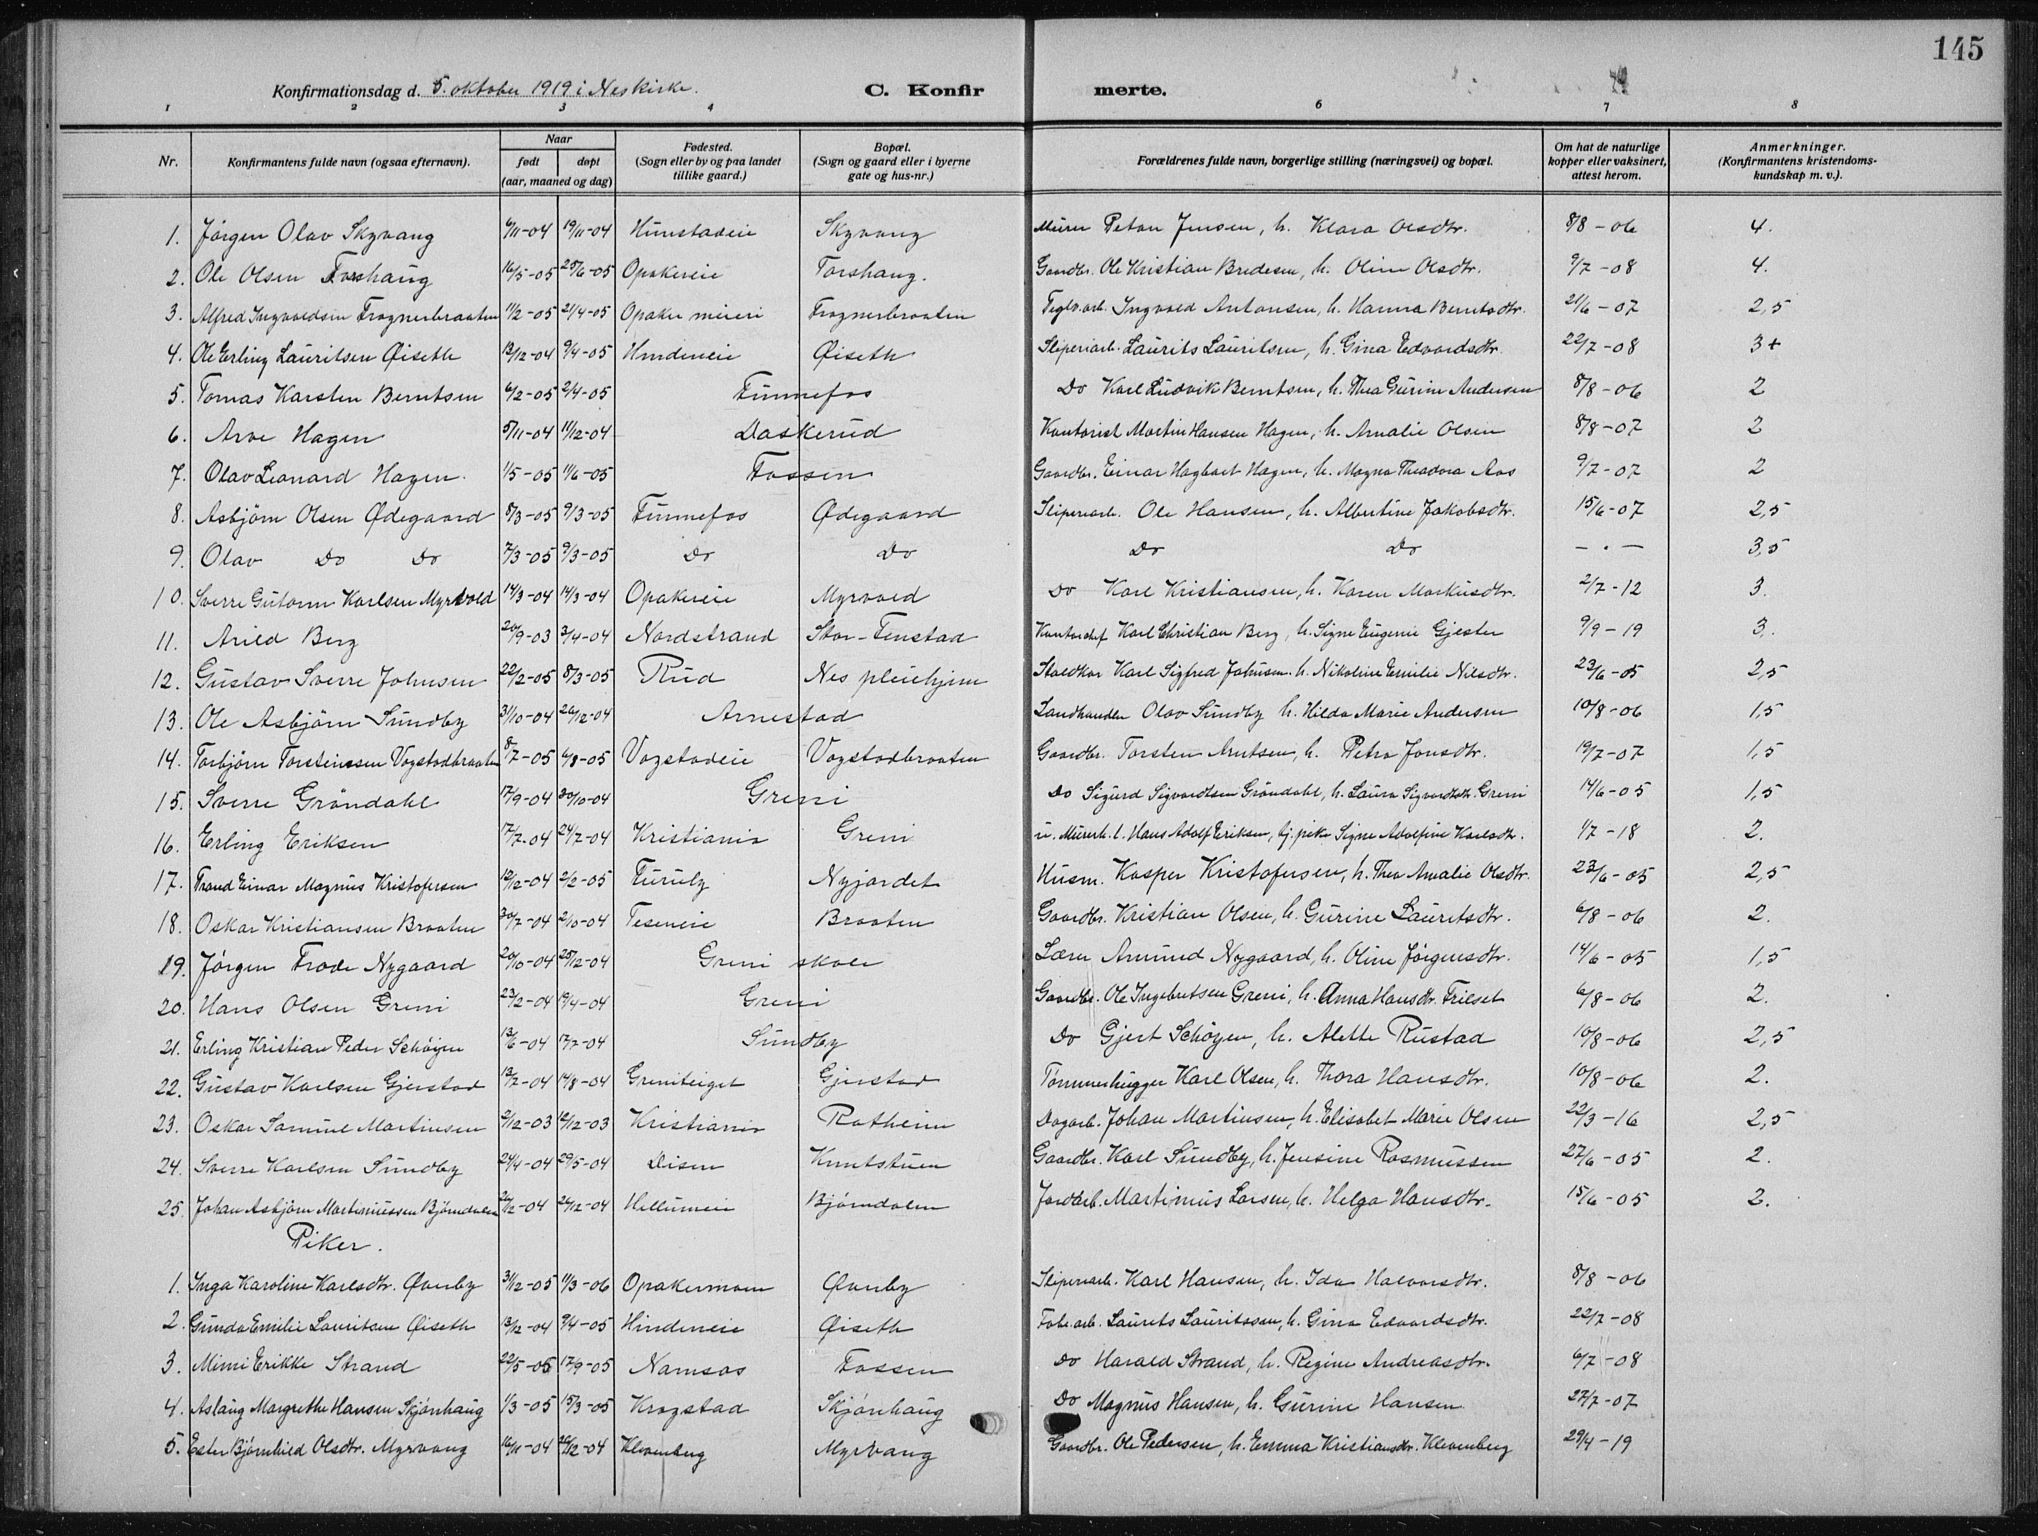 145
Konfirmationsdag d. 5. oktober 1919 i Nes kirke. C. Konfirmerte.
1 2 3 4 6 7 8
Nr. Konfirmantens fulde navn (ogsaa efternavn). Naar født døpt (aar, maaned og dag) Fødested. (Sogn eller by og paa landet tillike gaard.) Bopæl. (Sogn og gaard eller i byerne gate og hus-nr.) Forældrenes fulde navn, borgerlige stilling (næringsvei) og bopæl. Om hat de naturlige kopper eller vaksinert, attest herom. Anmerkninger. (Konfirmantens kristendomskundskap m. v.).
1. Jørgen Olav Skyvang 6/11-04 19/11-04 Hunstadeie Skyvang Murer Petter Jensen, h. Klara Olsdtr. 8/8-06 4.
2. Ole Olsen Torshaug 16/5-05 25/6-05 Opakereie Torshaug. Gaardbr. Ole Kristian Bredesen, h. Oline Olsdtr. 9/7-08 4.
3. Alfred Ingvoldsen Frognerbraaten 11/2-05 21/4-05 Opaker meieri Frognerbraaten Teglv.arb. Ingvald Antonsen, h. Hanna Berntsdtr. 21/6-07 2,5
4. Ole Erling Lauritsen Øiseth 13/12-04 9/4-05 Hindeneie Øiseth Sliperiarb. Laurits Lauritsen, h. Gina Edvardsdtr. 22/7-08 3+
5. Tomas Karsten Berntsen 6/2-05 2/4-05 Funnefos Do Karl Ludvik Berntsen, h. Thea Gurine Andersen 8/8-06 2
6. Arve Hagen 5/11-04 11/12-04 Daskerud Kontorist Martin Hansen Hagen, h. Amalie Olsen 8/8-07 2
7. Olav Leonard Hagen. 1/5-05 11/6-05 Fossen Gaardbr. Einar Hagbart Hagen, h. Magna Theodora Aas 9/7-07 2
8. Asbjørn Olsen Ødegaard 8/3-05 9/3-05 Funnefos Ødegaard Sliperiarb. Ole Hansen, h. Albertine Jakobsdtr. 15/6-07 2,5
9. Olav Do Do 7/3-05 9/3-05 Do Do Do Do - . - 3,5
10. Sverre Gutorm Karlsen Myrvold 14/3-04 14/3-04 Opakereie Myrvold Do Karl Kristiansen, h. Karen Markusdtr. 2/7-12 3.
11. Arild Berg 20/9-03 3/4-04 Nordstrand Stor-Fenstad Kontorchef Karl Christian Berg, h. Signe Eugenie Gjester 9/9-19 3.
12. Gustav Sverre Johnsen 22/2-05 8/3-05 Rud Nes pleiehjem Staldkar Karl Sigfred Johnsen h. Nikoline Emilie Nilsdtr. 23/6-05 2,5
13. Ole Asbjørn Sundby 31/10-04 26/12-04 Arnestad Landhandler Olav Sundby h. Hilda Marie Andersen 10/8-06 1,5
14. Torbjørn Torsteinssen Vogstadbraaten 8/7-05 6/8-05 Vogstadeie Vogstadbraaten Gaardbr. Torsten Arntsen, h. Petra Jonsdtr. 19/7-07 1,5
15. Sverre Grøndahl 17/9-04 30/10-04 Greni Do Sigurd Sigvardtsen Grøndahl, h. Laura Sigvardtsdtr. Greni 14/6-05 1,5
16. Erling Eriksen 17/7-04 24/7-04 Kristiania Greni u. Murerh. l. Hans Adolf Eriksen, tj. pike Signe Adolfine Karlsdtr. 1/7-18 2.
17. Trond Einar Magnus Kristofersen 12/12-04 2/2-05 Furuly Nyjordet Husm. Kasper Kristofersen, h. Thea Amalie Olsdtr. 23/6-05 2,5
18. Oskar Kristiansen Braaten 30/7-04 2/10-04 Teseneie Braaten Gaardbr. Kristian Olsen, h. Gurine Lauritsdtr. 6/8-06 2.
19. Jørgen Frode Nygaard 20/10-04 25/12-04 Greni skole Lærer Amund Nygaard, h. Oline Jørgensdtr. 14/6-05 1,5
20. Hans Olsen Greni 23/2-04 19/4-04 Greni Gaardbr. Ole Ingebretsen Greni, h. Anna Hansdtr. Frilset 6/8-06 2.
21. Erling Kristian Peder Schøyen 13/6-04 17/7-04 Sundby Do Gjert Schøyen, h. Alette Rustad 10/8-06 2,5
22. Gustav Karlsen Gjerstad 13/7-04 14/8-04 Greniteiget Gjerstad Tømmerhugger Karl Olsen, h. Thora Hansdtr. 10/8-06 2.
23. Oskar Samuel Martinsen 2/12-03 12/12-03 Kristiania Ratheim Dagarb. Johan Martinsen, h. Elisabet Marie Olsen 22/3-16 2,5
24. Sverre Karlsen Sundby 24/4-04 29/5-04 Disen Knutstuen Gaardbr. Karl Sundby, h. Jensine Rasmussen 27/6-05 2.
25. Johan Asbjørn Martiniussen Bjørndalen 20/12-04 26/12-04 Hellumeie Bjørndalen Jordarb. Martinius Larsen, h. Helga Hansdtr. 15/6-05 2.
Piker.
1. Inga Karoline Karlsdtr. Øverby 31/12-05 11/3-06 Opakermoen Øverby Sliperiarb. Karl Hansen, h. Ida Halvorsdtr. 8/8-06
2. Gunda Emilie Lauritsen Øiseth 13/12-04 9/4-05 Hindeneie Øiseth Fabr.arb. Laurits Lauritssen, h. Gina Edvardsdtr. 22/7-08
3. Mimi Erikke Strand 22/5-05 17/9-05 Namsos Fossen Do Harald Strand, h. Regine Andreasdtr. 6/7-08
4. Aslaug Margrethe Hansen Skjønhaug 1/3-05 15/3-05 Krogstad Skjønhaug Do Magnus Hansen, h. Gurine Hansen 27/7-07
5. Ester Bjørnhild Olsdtr. Myrvang 16/11-04 26/12-04 Klevenberg Myrvang Gaardbr. Ole Pedersen, h. Emma Kristiansdtr. Klevenberg 29/4-19